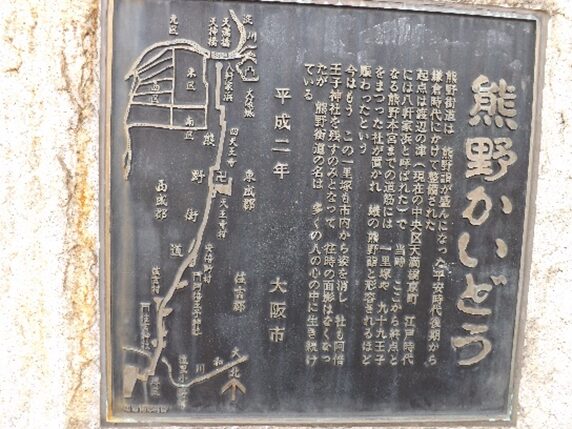 熊野かいどう
熊野街道は 熊野詣が盛んになった平安時代後期から
鎌倉時代にかけて整備された
起点は渡辺の津(現在の中央区天満橋京町 江戸時代
には八軒家浜と呼ばれた)で 当時 ここから終点と
なる熊野本宮までの道筋には 一里塚や 九十九王子
をまつった社が置かれ 蟻の熊野詣と形容されるほど
賑わったという
今はもう この一里塚も市内から姿を消し 社も阿倍
王子神社を残すのみとなって 往時の面影はなくなっ
たが 熊野街道の名は 多くの人の心の中に生き続け
ている
平成二年
大阪市
淀川
天満橋
天神橋
北区
八軒家浜
大阪城
東区
西区
南区
熊野街道
四天王寺
天王寺村
東成郡
西成郡
安倍野村
阿倍王子神社
住吉郡
住吉村
住吉神社
大和川
北